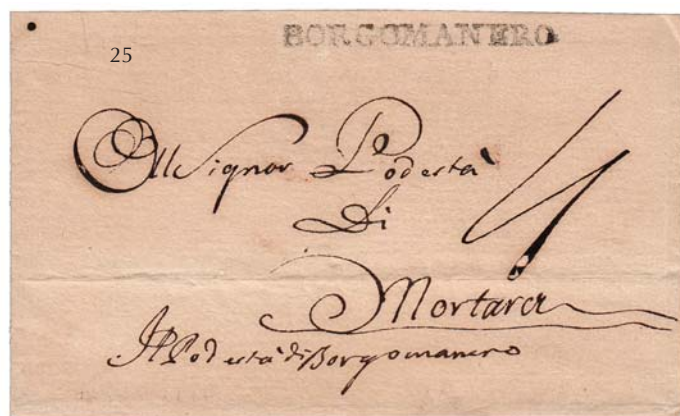 BORGOMANERO
25
All Signor Podestà
Di
4
Mortara
Il Podestà di Borgomanero